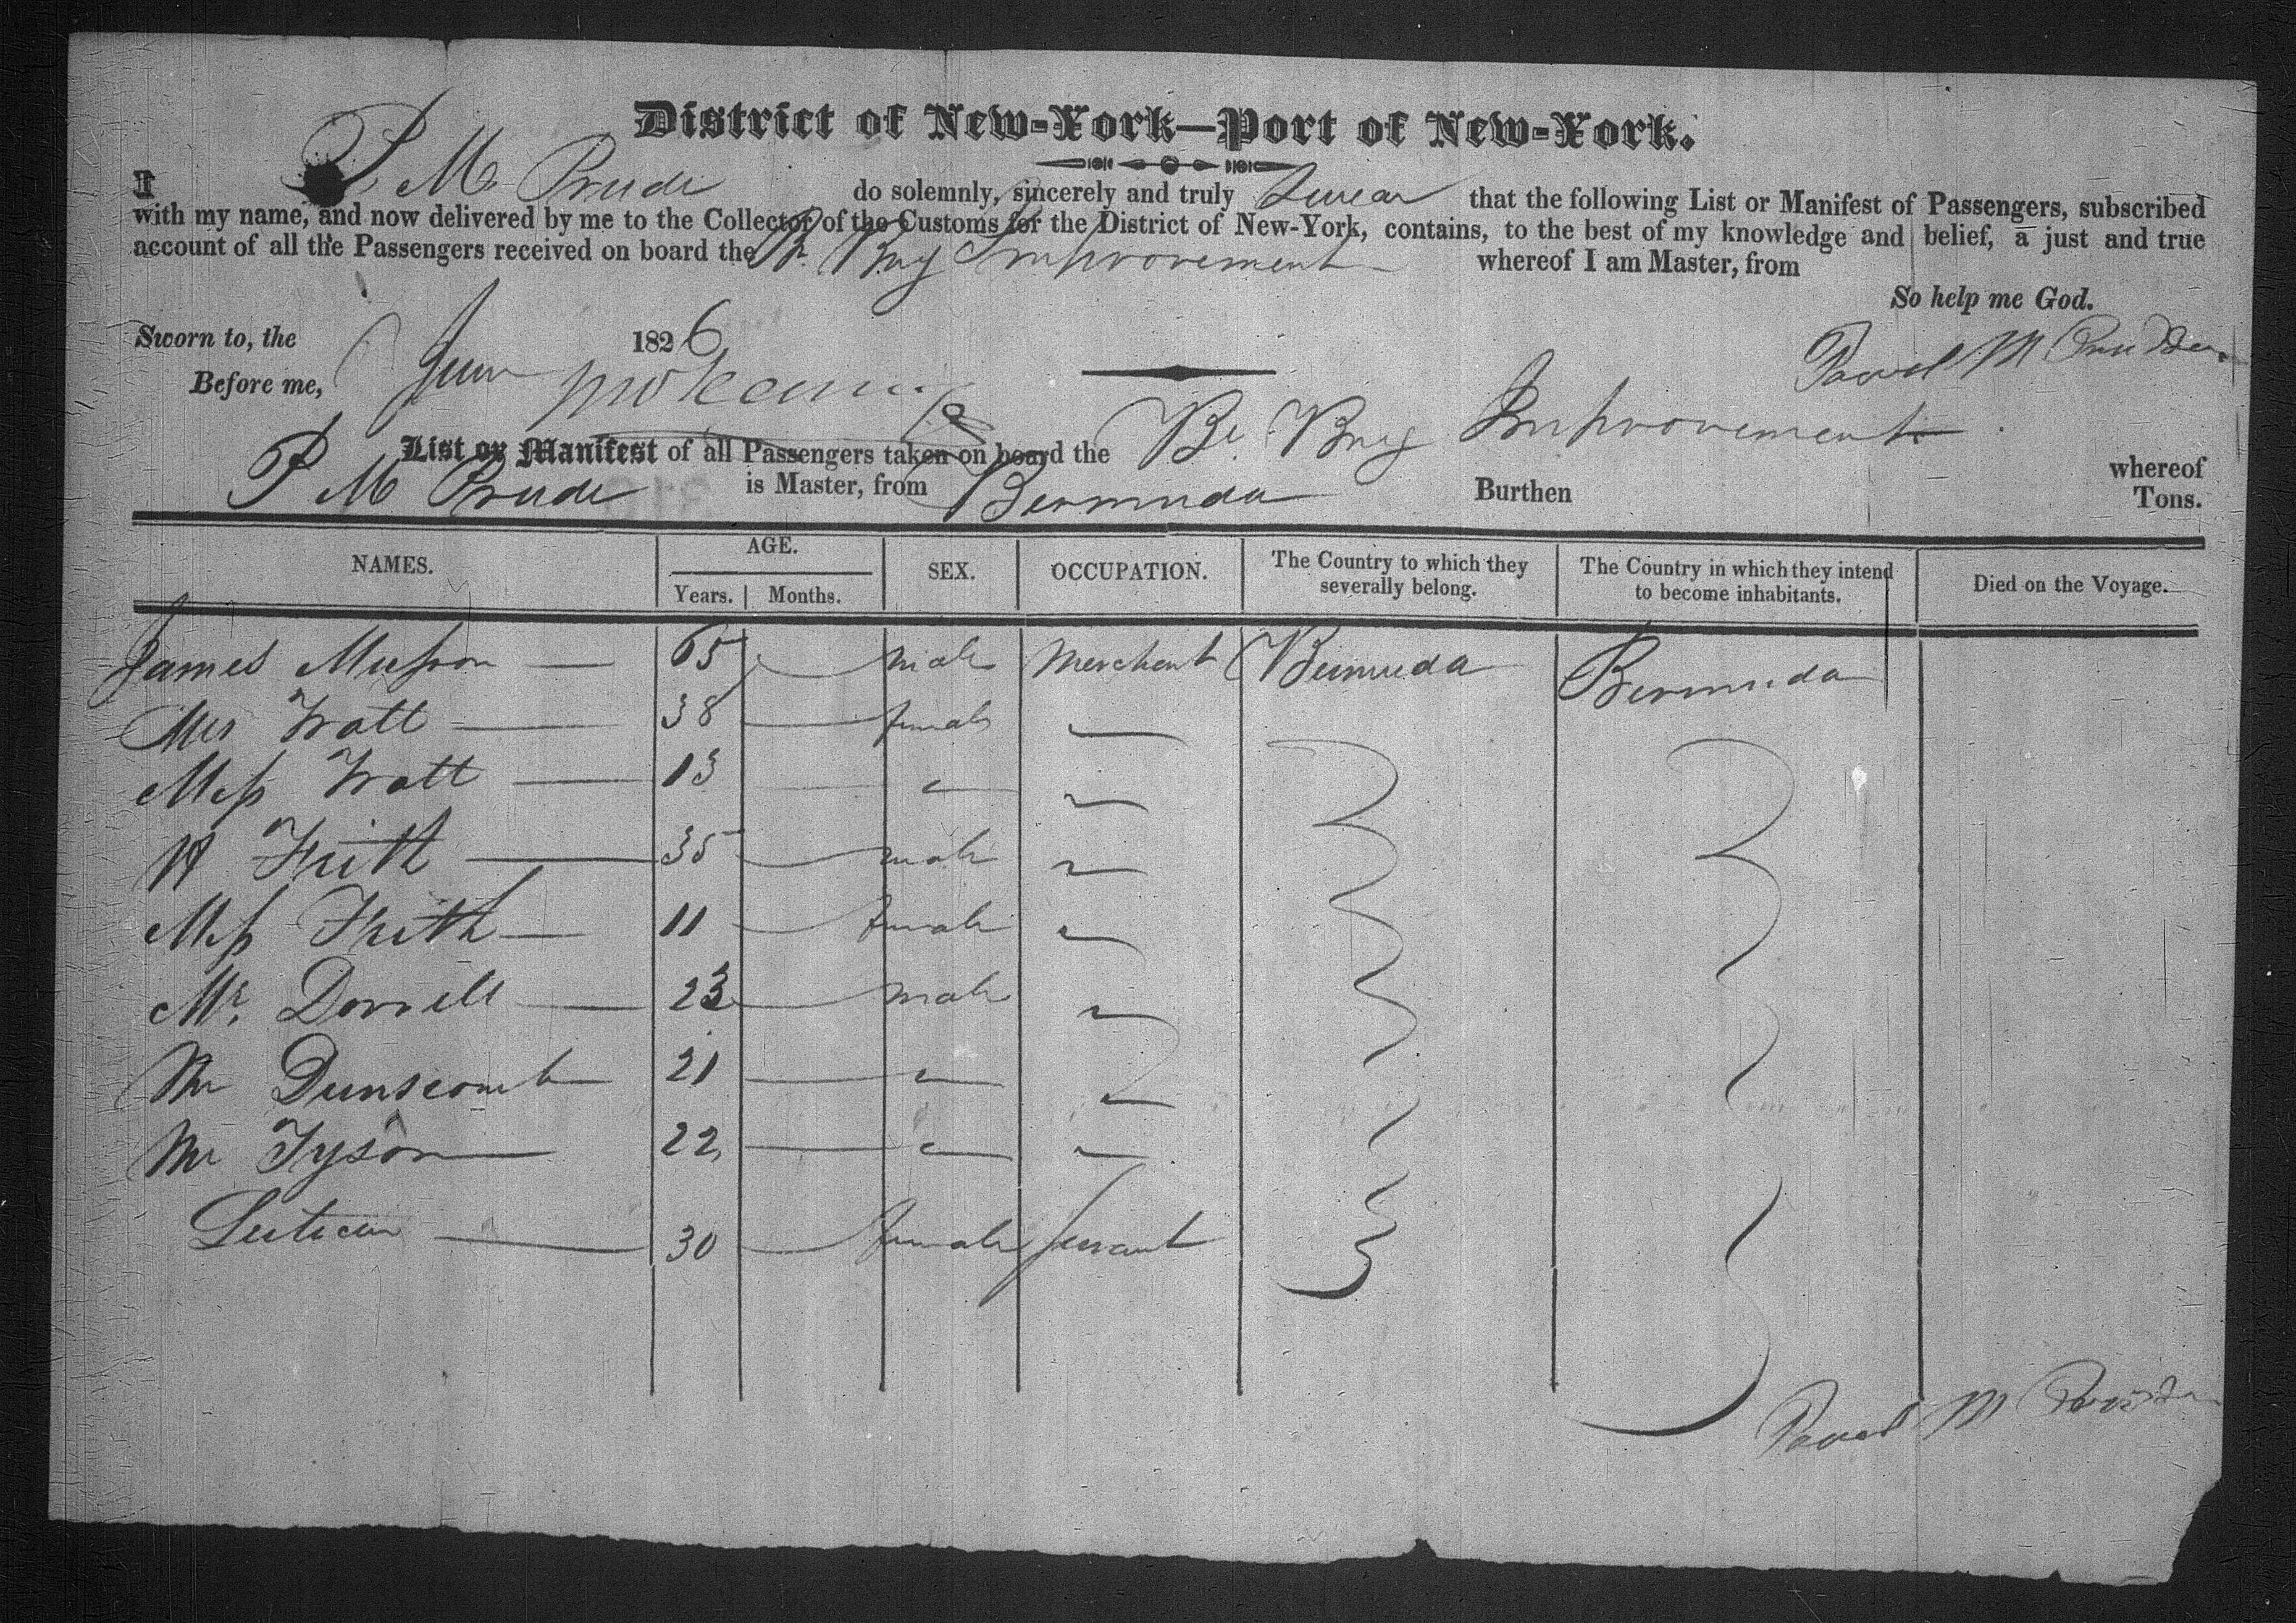 District of New-York—Port of New-York.
I P. M. Prude do solemnly, sincerely and truly Swear that the following List or Manifest of Passengers, subscribed
with my name, and now delivered by me to the Collector of the Customs for the District of New-York, contains, to the best of my knowledge and belief, a just and true
account of all the Passengers received on board the Br. Brig Improvement whereof I am Master, from
So help me God.
Sworn to, the June 1826
Before me,
List or Manifest of all Passengers taken on board the Br Brig Improvement whereof
P M Prude is Master, from Bermuda Burthen Tons.
NAMES. AGE. SEX. OCCUPATION. The Country to which they severally belong. The Country in which they intend to become inhabitants. Died on the Voyage.
Years. Months.
James Musson 65 male Merchant Bermuda Bermuda
Mrs Tratt 38 female
Miss Tratt 13 "
W Frith 35 male
Miss Frith 11 female
Mr. Dorrell 23 male
Mr Dunscomb 21 "
Mr Tyson 22 "
30 female servant